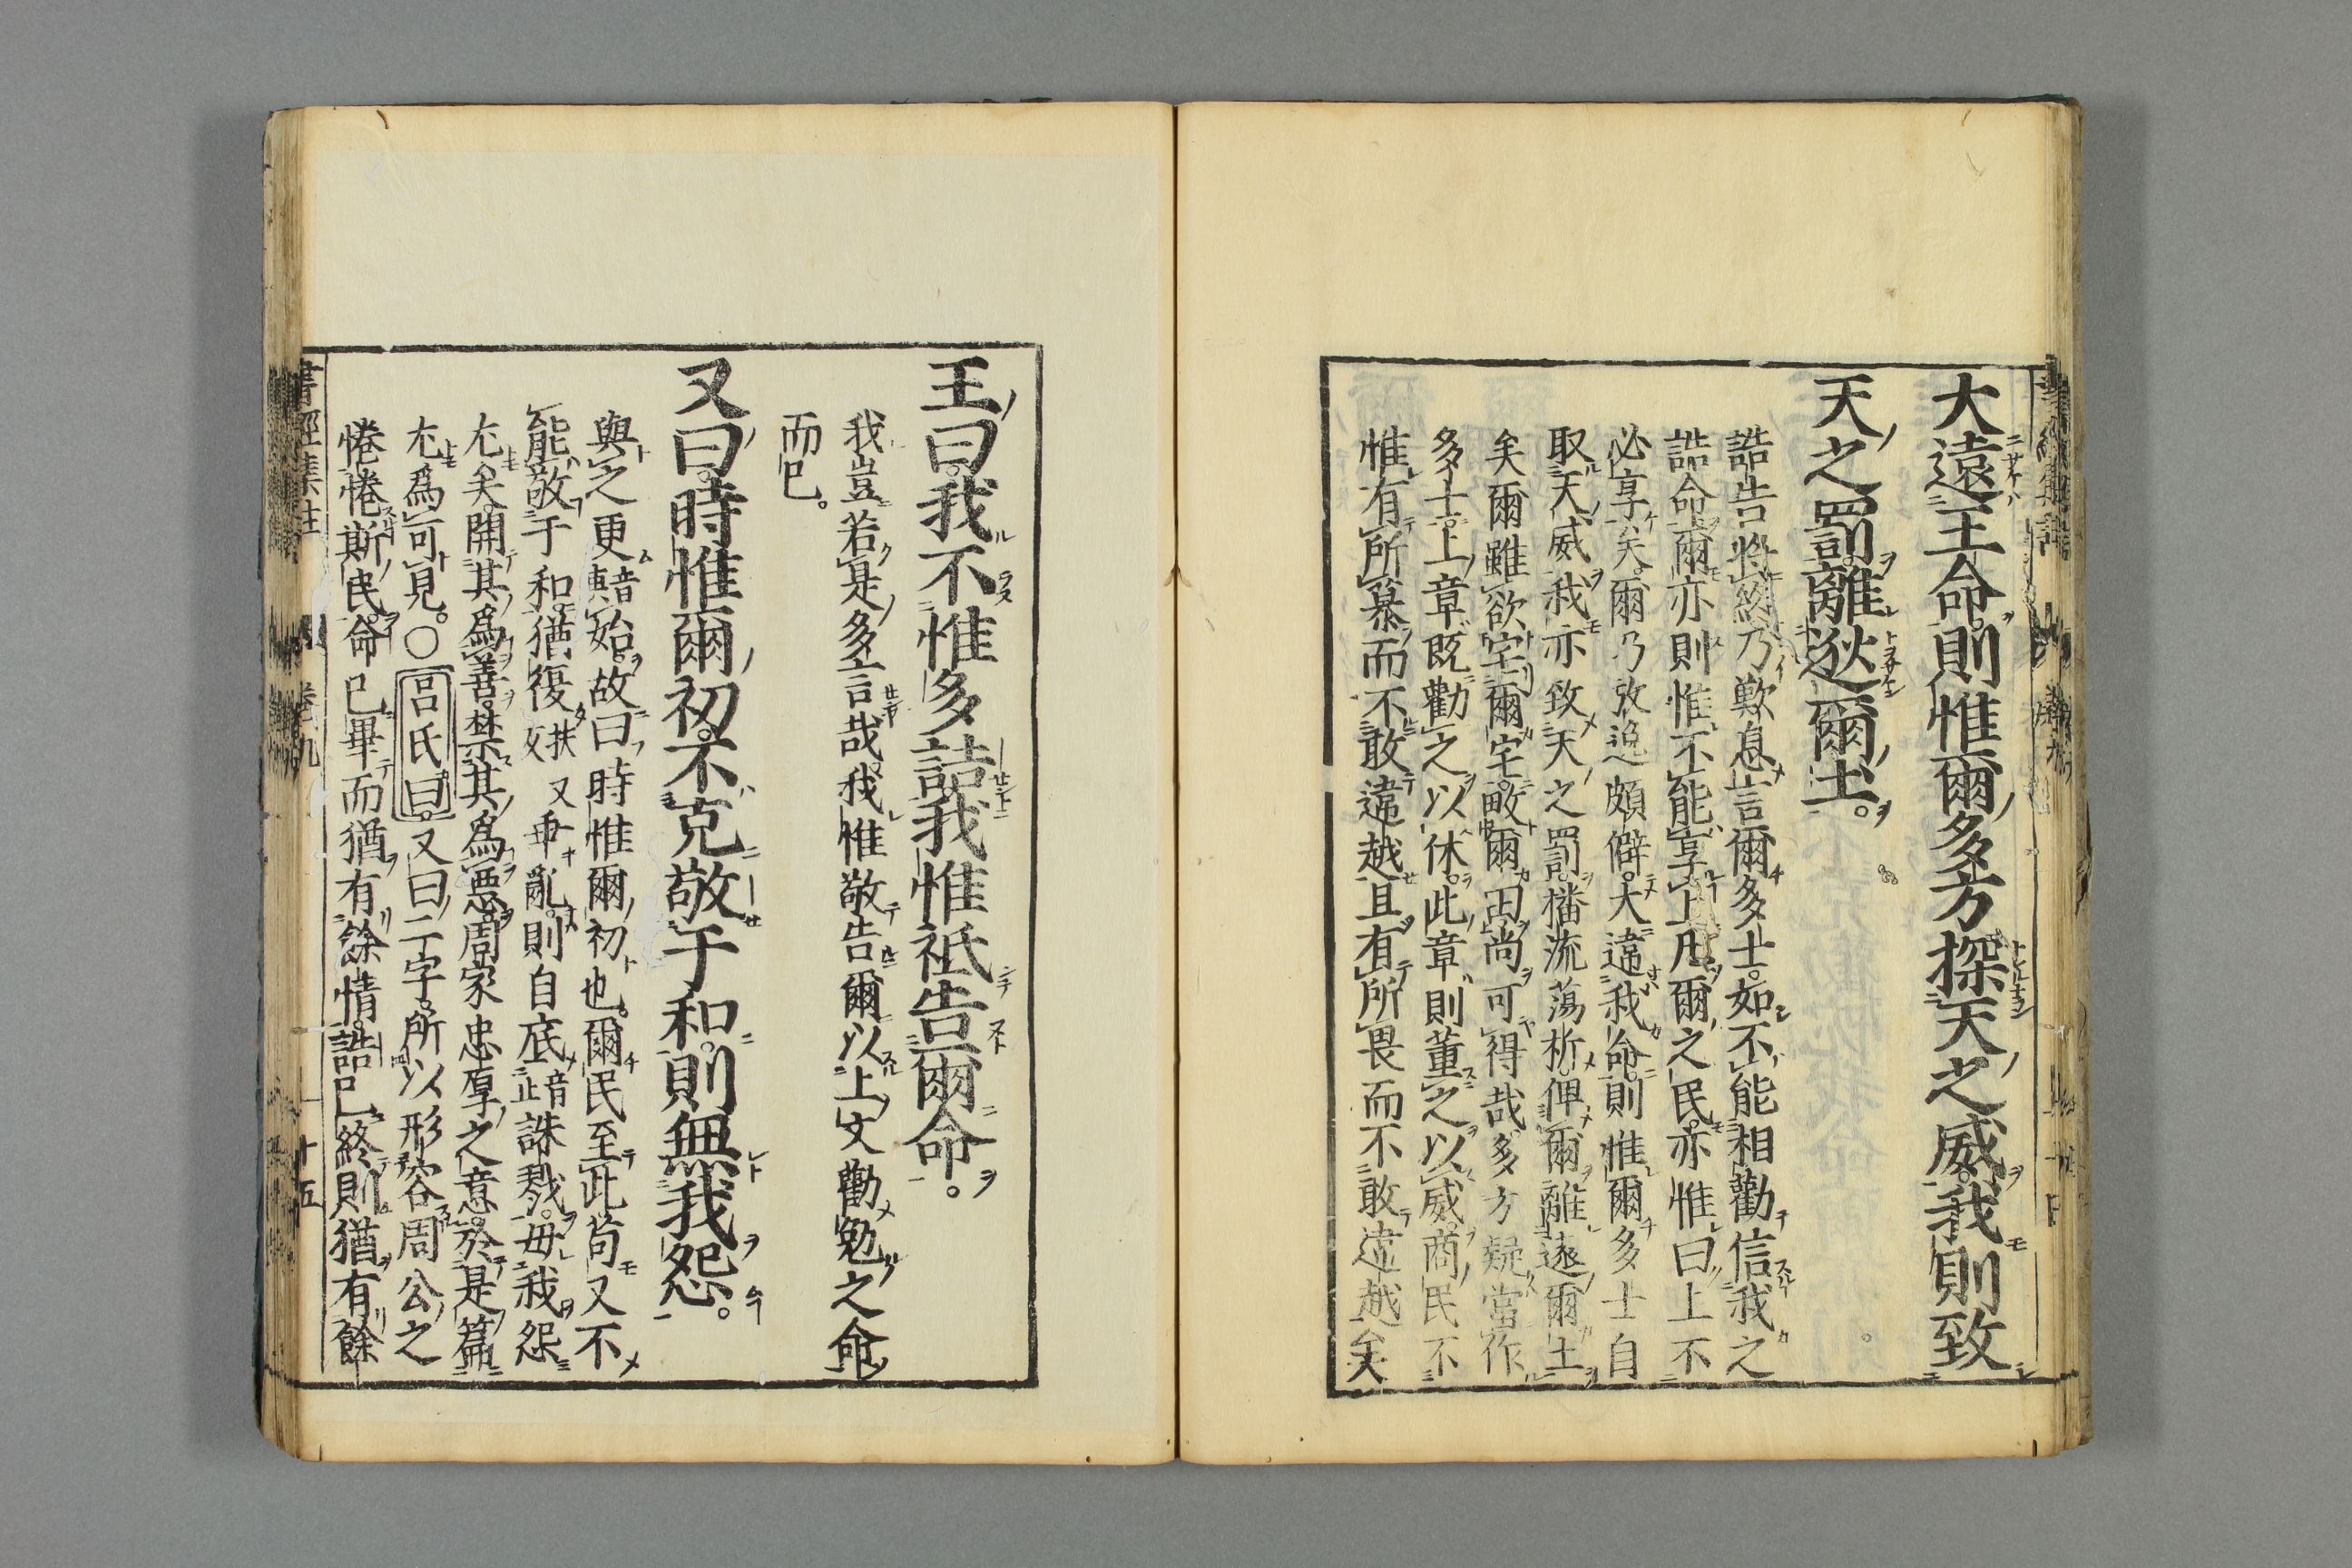 大遠王命則惟爾多方探天之威我則致
天之罰離逖爾土。
誥告將終乃歎息言爾多士如不能相勸信我之
誥命爾亦則惟不能享上凡爾之民亦惟曰上不
必享矣爾乃放逸頗僻大違我命則惟爾多士自
取天威我亦致天之罰播流蕩析俾爾離遠爾土
矣爾雖欲宅爾宅畋爾田尚可得哉多方疑當作
多士上章既勸之以休此章則董之以威商民不
惟有所慕而不敢違越且有所畏而不敢違越矣
王曰我不惟多誥我惟祗告爾命。
我豈若是多言哉我惟敬告爾以上文勸勉之命
而已。
又曰時惟爾初不克敬于和則無我怨。
與之更始故曰時惟爾初也爾民至此苟又不
能敬于和猶復扶又乖亂則自厎音止誅戮毋我怨
尤矣開其為善禁其為惡周家忠厚之意於是篇
尤為可見。○呂氏曰又曰二字所以形容周公之
惓惓斯民命已畢而猶有餘情誥已終則猶有餘
書經集註 卷九 十五